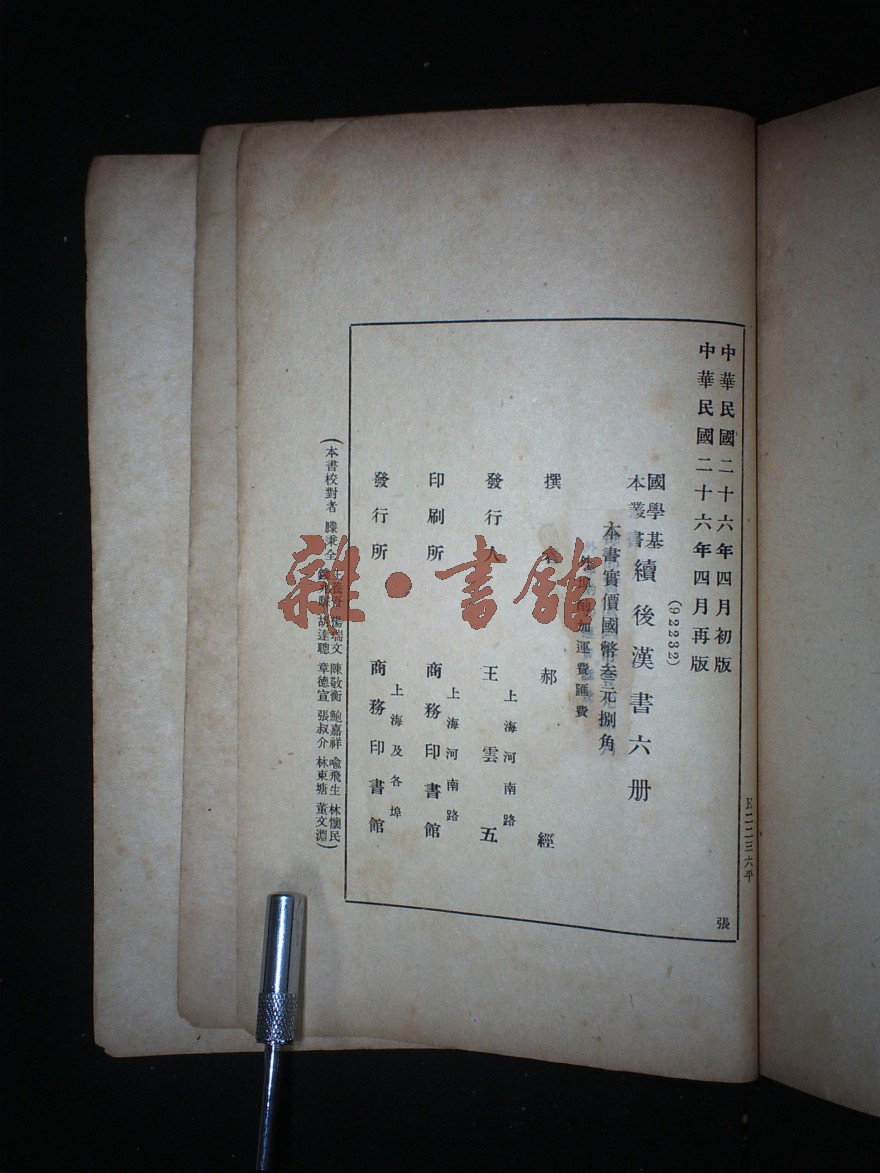 中華民國二十六年四月初版
中華民國二十六年四月再版
(92232)
國學基本叢書
續後漢書六册
本書實價國幣叁元捌角
外埠酌加運費匯費
撰 者 郝 經
發行人 王雲五
上海河南路
印刷所 商務印書館
上海河南路
發行所 商務印書館
上海及各埠
(本書校對者 滕秉全 楊瑞文 胡達聰 陳敬衡 章德宣 鮑嘉祥 張叔介 喻飛生 林東塘 林懷民 董文淵)
E二二三六平
張
雜·書館